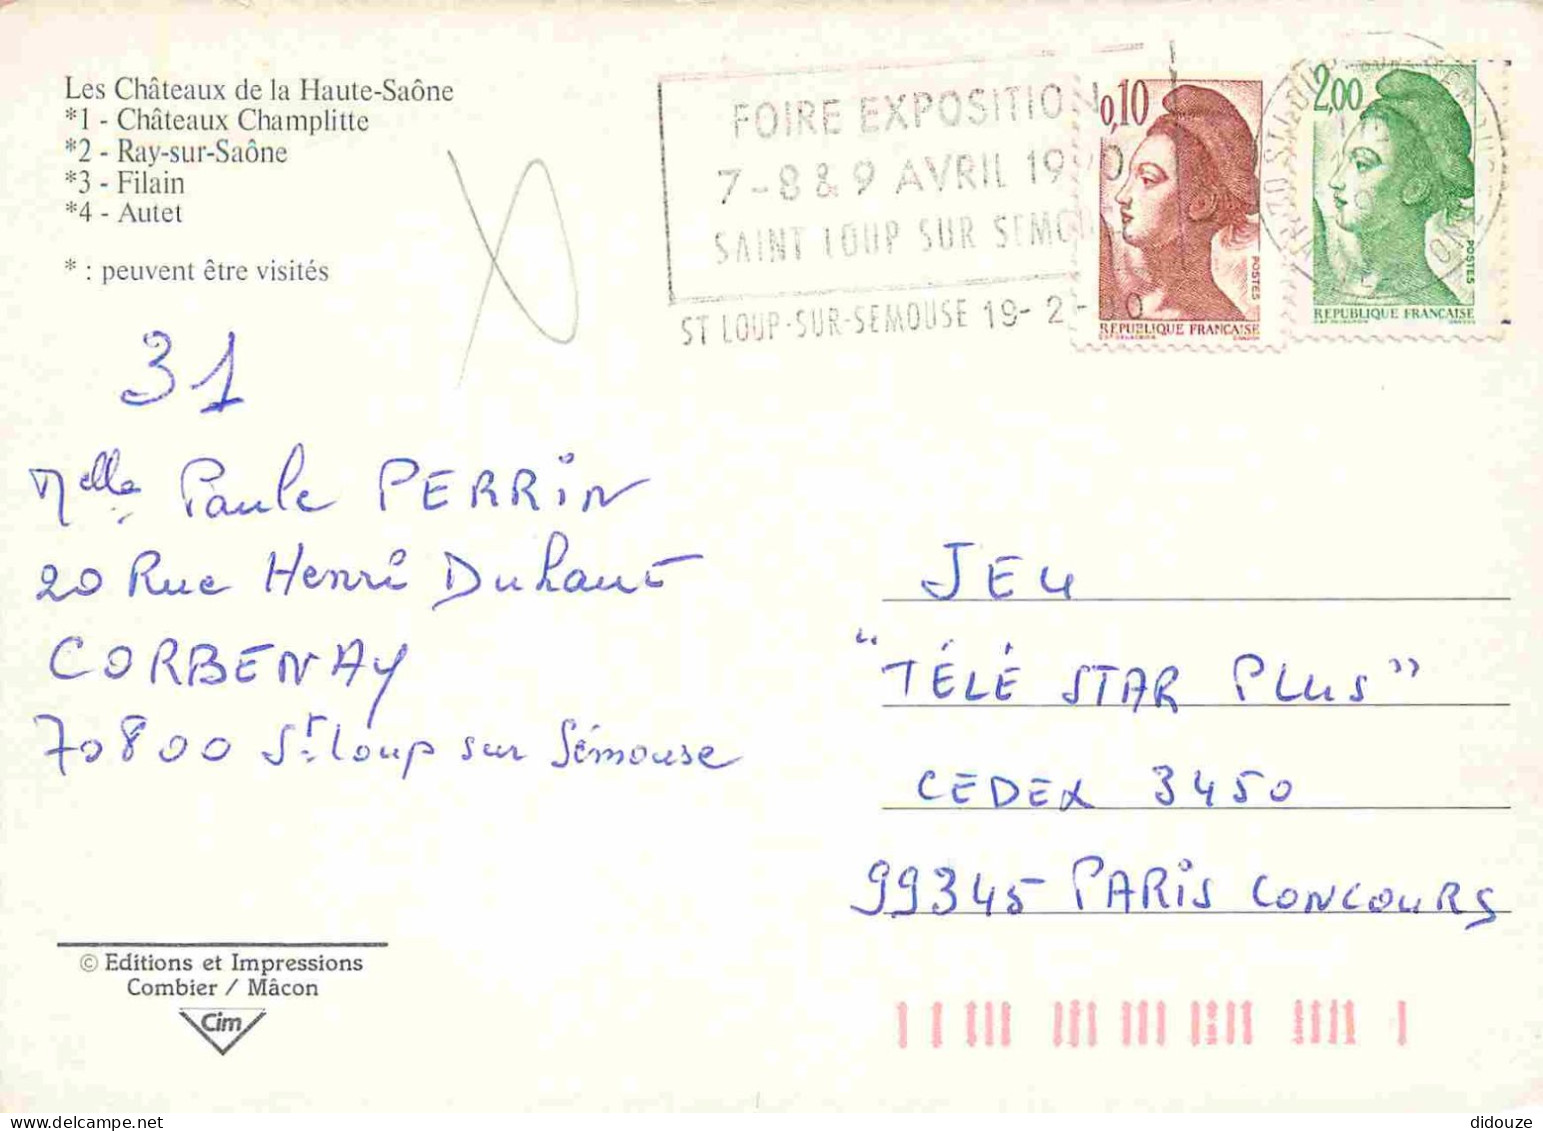 Les Châteaux de la Haute-Saône
*1 - Châteaux Champlitte
*2 - Ray-sur-Saône
*3 - Filain
*4 - Autet
* : peuvent être visités
FOIRE EXPOSITION
7-8 & 9 AVRIL 1990
SAINT LOUP SUR SEMOUSE
ST LOUP-SUR-SEMOUSE 19-2-90
0,10
POSTES
REPUBLIQUE FRANÇAISE
2,00
POSTES
REPUBLIQUE FRANÇAISE
31
Melle Paule PERRIN
20 Rue Henri Duhaut
CORBENAY
70800 St. Loup sur Sémouse
JEU
“TÉLÉ STAR PLUS”
CEDEX 3450
99345 PARIS CONCOURS
© Editions et Impressions
Combier / Mâcon
Cim
didouze